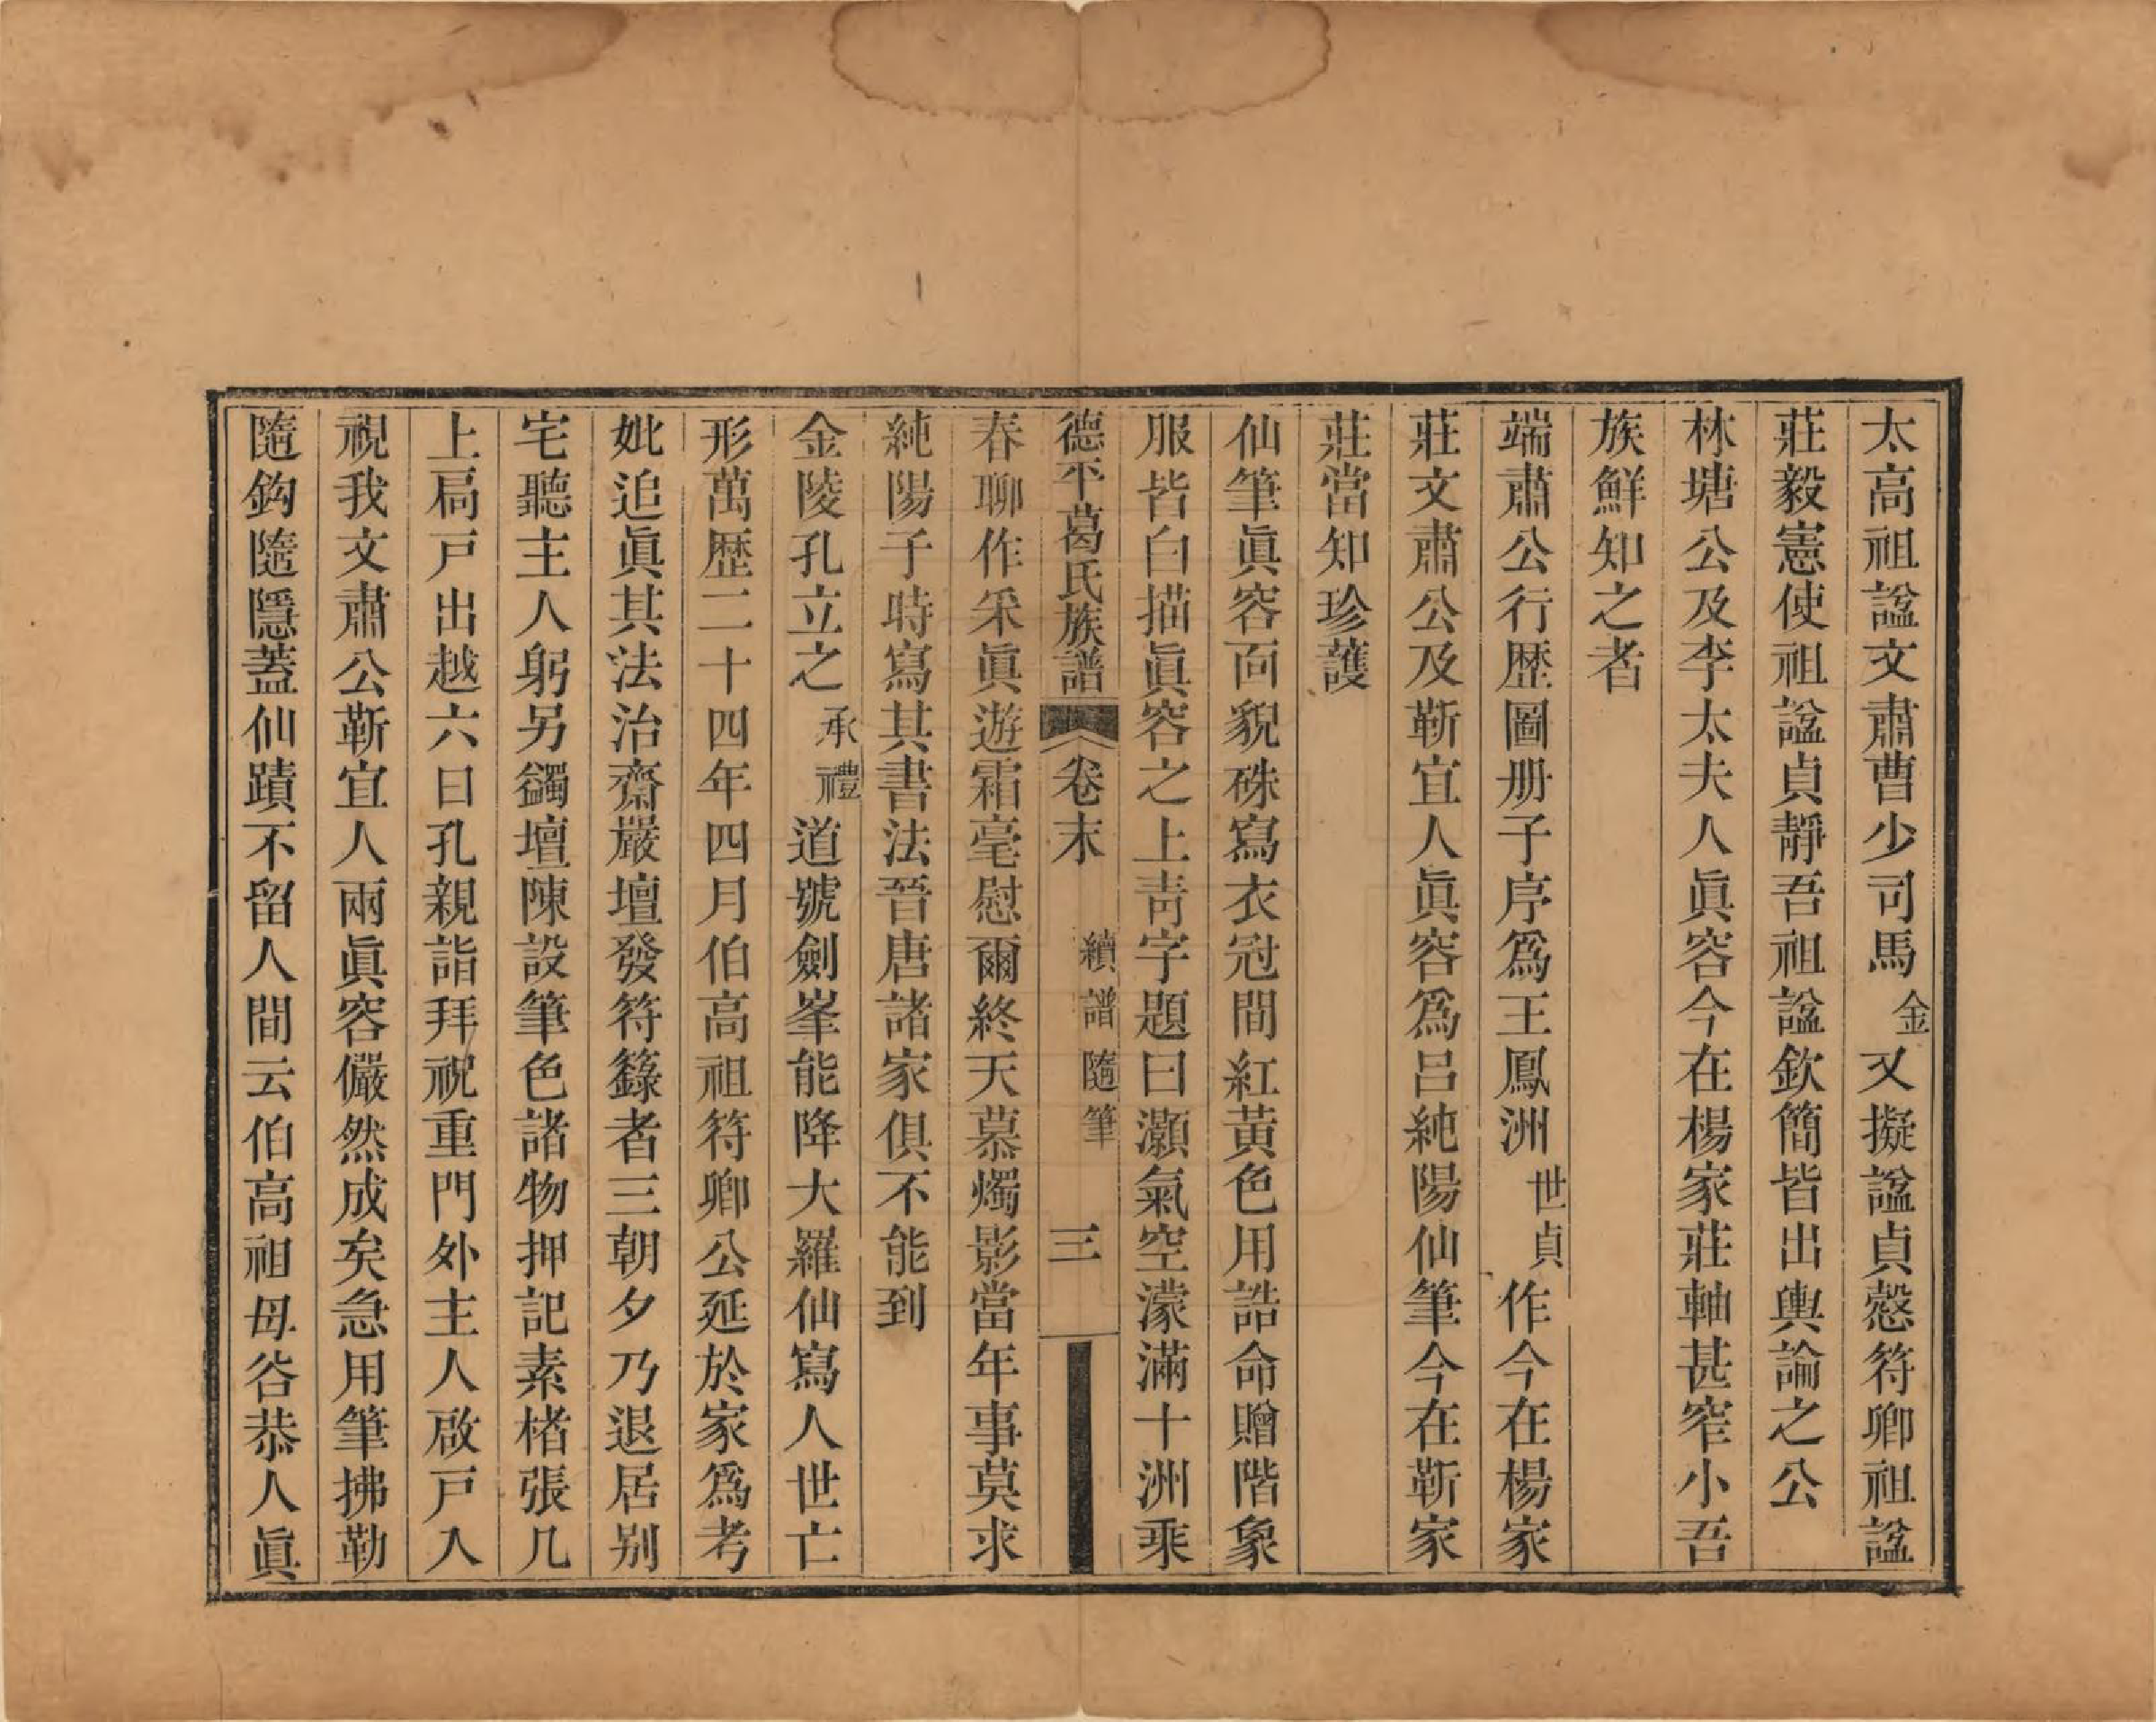 太高祖諡文肅曹少司馬金又擬諡貞慤符卿祖諡
莊毅憲使祖諡貞靜吾祖諡欽簡皆出輿論之公
林塘公及李太夫人眞容今在楊家莊軸甚窄小吾
族鮮知之者
端肅公行歷圖册子序爲王鳳洲世貞作今在楊家
莊文肅公及靳宜人眞容爲呂純陽仙筆今在靳家
莊當知珍護
仙筆眞容面貌硃寫衣冠間紅黃色用誥命贈階象
服皆白描眞容之上靑字題曰灝氣空濛滿十洲乘
德平葛氏族譜 卷末 續譜隨筆 三
春聊作采眞遊霜毫慰爾終天慕燭影當年事莫求
純陽子時寫其書法晉唐諸家俱不能到
金陵孔立之承禮道號劍峯能降大羅仙寫人世亡
形萬歷二十四年四月伯高祖符卿公延於家爲考
妣追眞其法治齋嚴壇發符籙者三朝夕乃退居别
宅聽主人躬另蠲壇陳設筆色諸物押記素楮張几
上扃戸出越六日孔親詣拜祝重門外主人啟戸入
視我文肅公靳宜人兩眞容儼然成矣急用筆拂勒
隨鈎隨隱蓋仙蹟不留人間云伯高祖母谷恭人眞